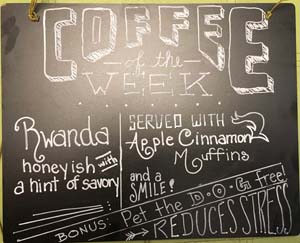 COFFEE
of the
WEEK
Rwanda
honeyish with
a hint of savory
SERVED WITH
Apple Cinnamon
Muffins
and a
SMILE!
BONUS: Pet the D•O•G free!
REDUCES STRESS